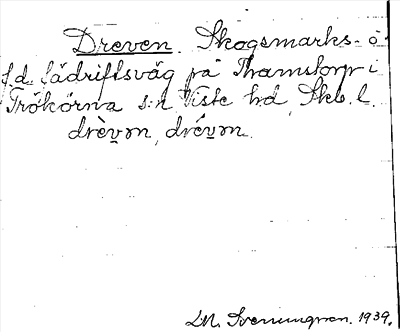 Dreven. Skogsmarks- o
f.d. fädriftsväg på Thamstorp i
Frökörna s:n Viste hd, Skb. l.
drèvən, drévən.
D.M. Svenungsson. 1939.